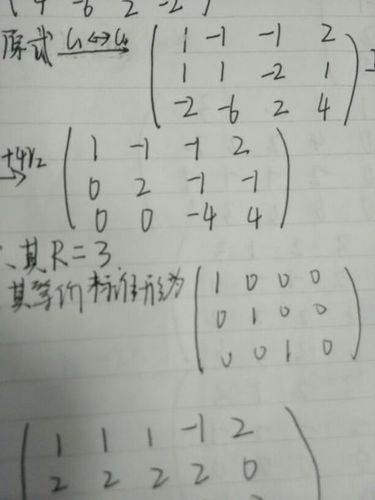 4 -6 2 -2
原式 C₁↔C₄ 1 -1 -1 2
1 1 -2 1
-2 -6 2 4
+4r₂ 1 -1 -1 2
0 2 -1 -1
0 0 -4 4
∴其R=3
其等价标准形为 1 0 0 0
0 1 0 0
0 0 1 0
1 1 1 -1 2
2 2 2 2 0